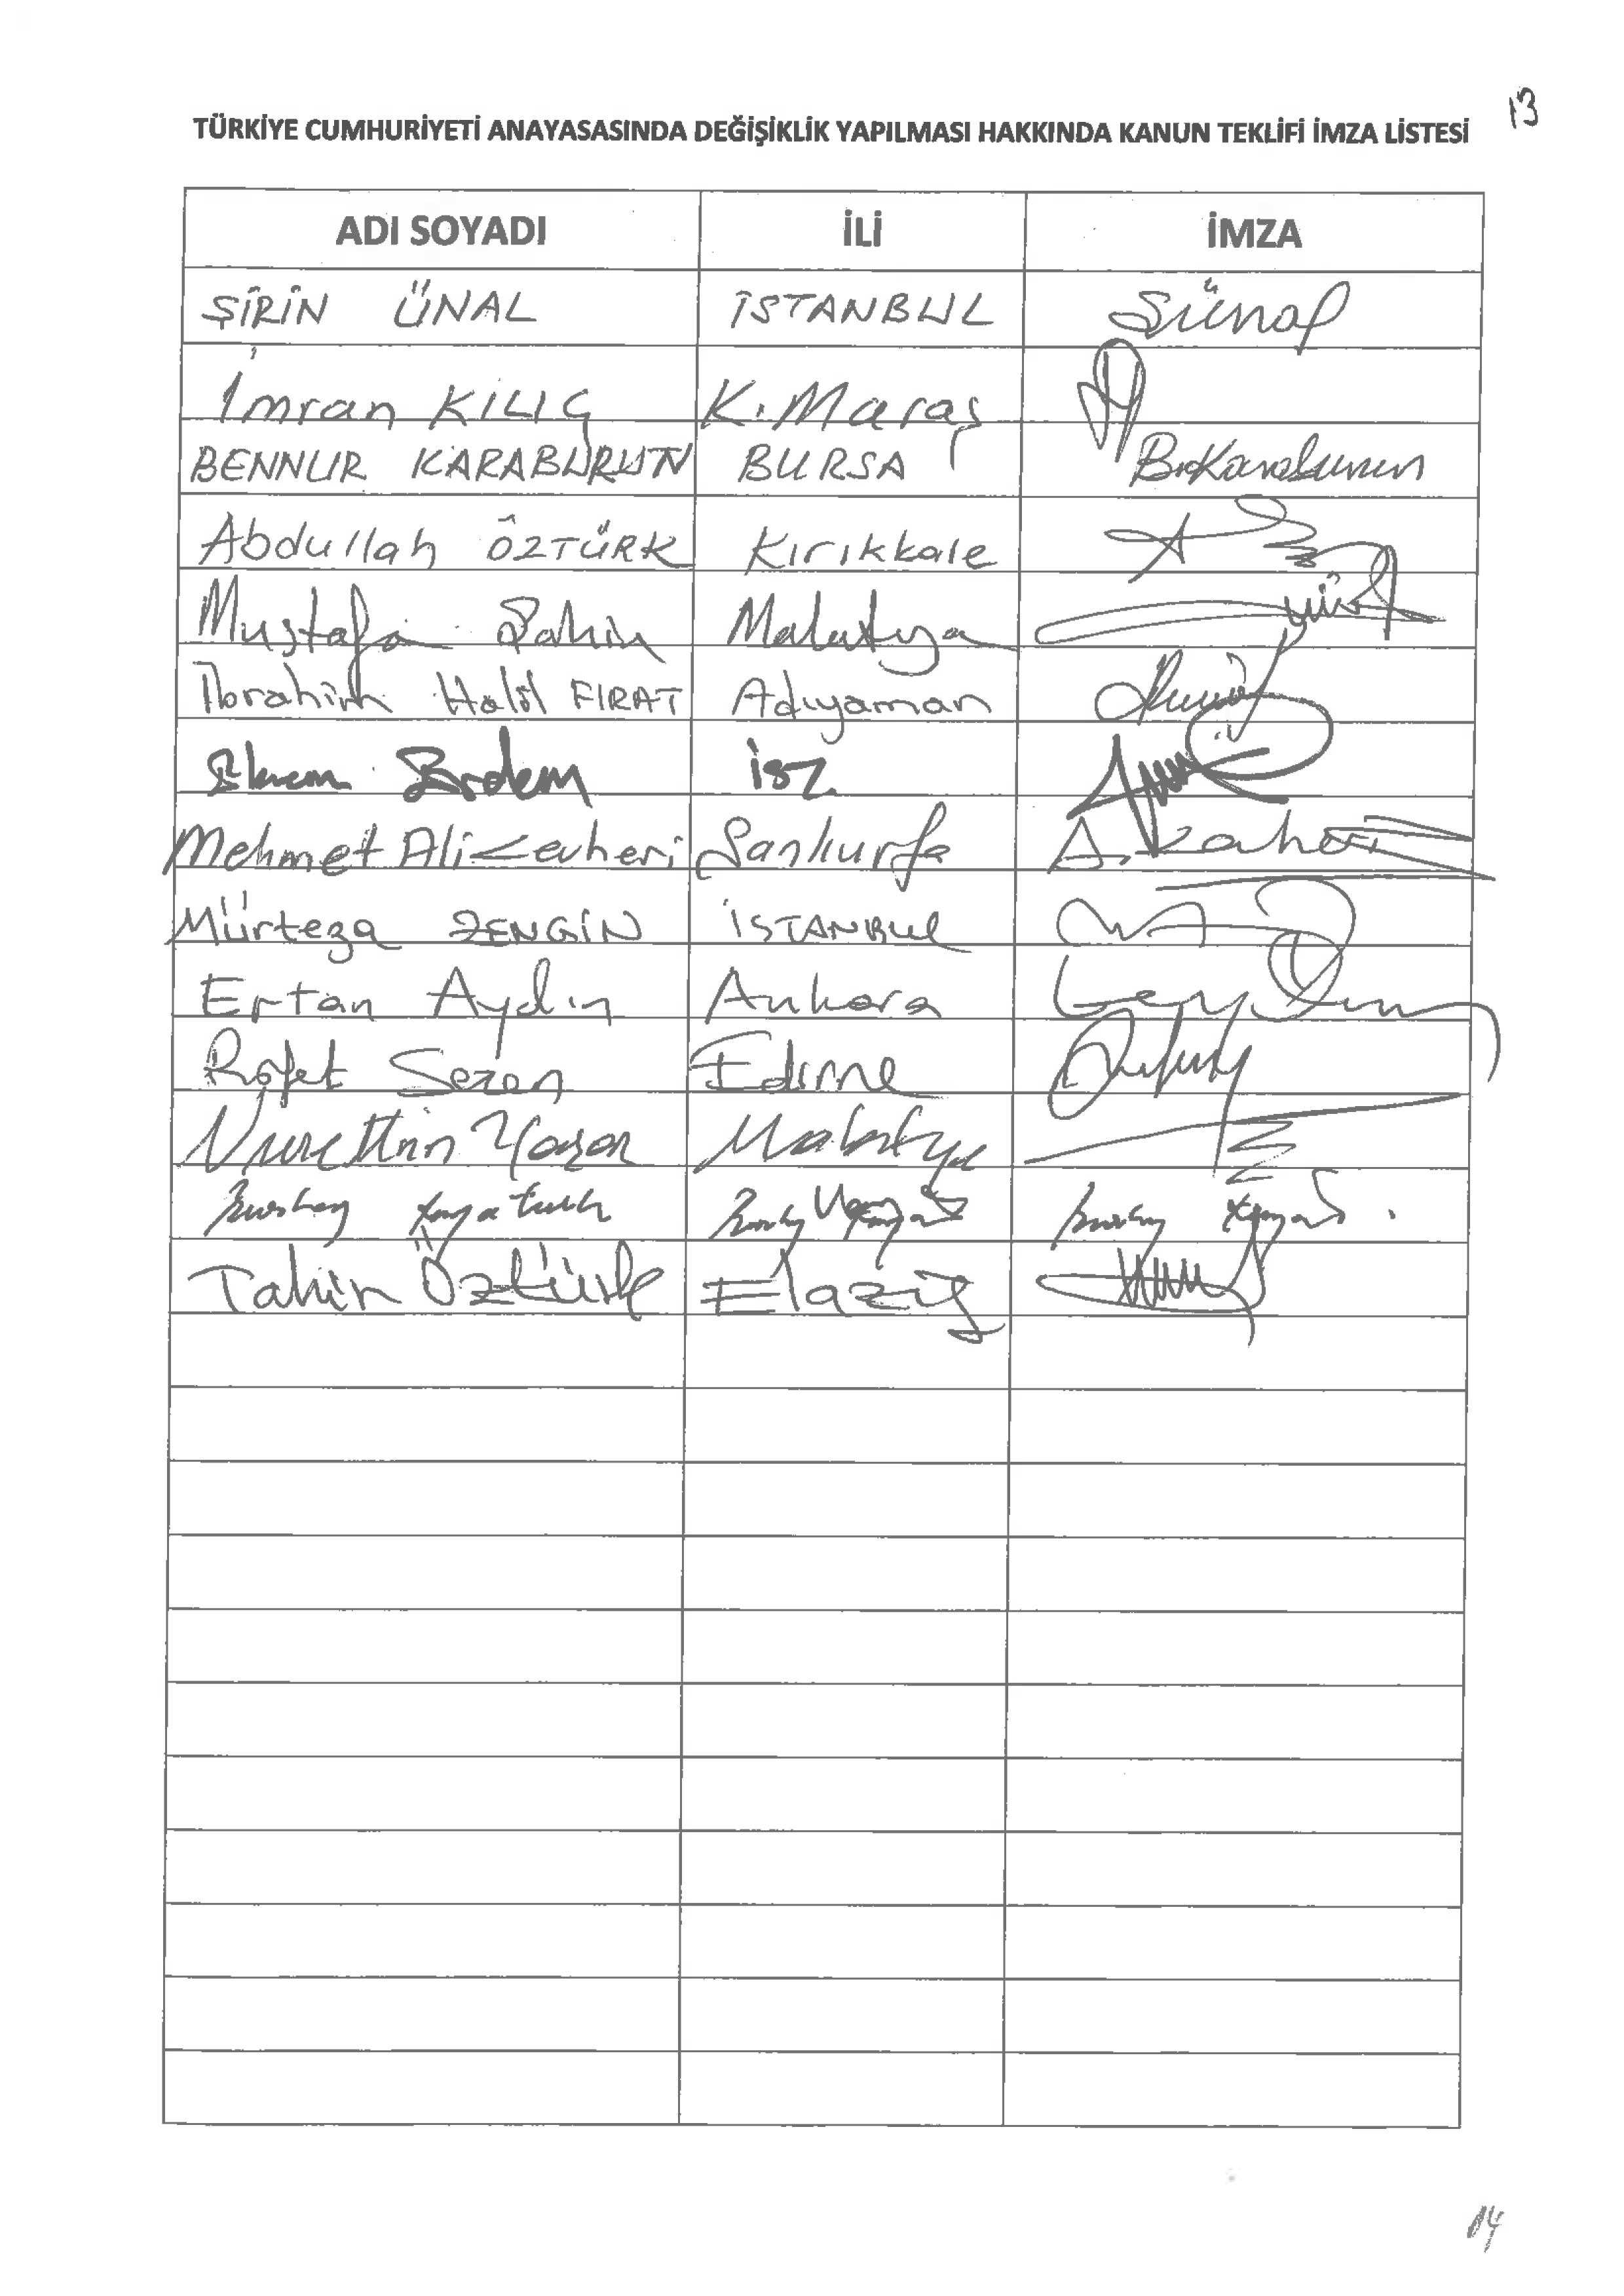 13
TÜRKİYE CUMHURİYETİ ANAYASASINDA DEĞİŞİKLİK YAPILMASI HAKKINDA KANUN TEKLİFİ İMZA LİSTESİ
ADI SOYADI İLİ İMZA
ŞİRİN ÜNAL İSTANBUL SÜnal
İmran KILIÇ K.Maraş
BENNUR KARABURUN BURSA B.Karaburun
Abdullah ÖZTÜRK Kırıkkale
Mustafa Şahin Malatya
İbrahim Halil FIRAT Adıyaman
Ekrem Erdem İst.
Mehmet Ali Cevheri Şanlıurfa
Mürteza ZENGİN İSTANBUL
Ertan Aydın Ankara
Rafet Sezen Edirne
Nurettin Yaşar Malatya
Tahir Öztürk Elazığ
14